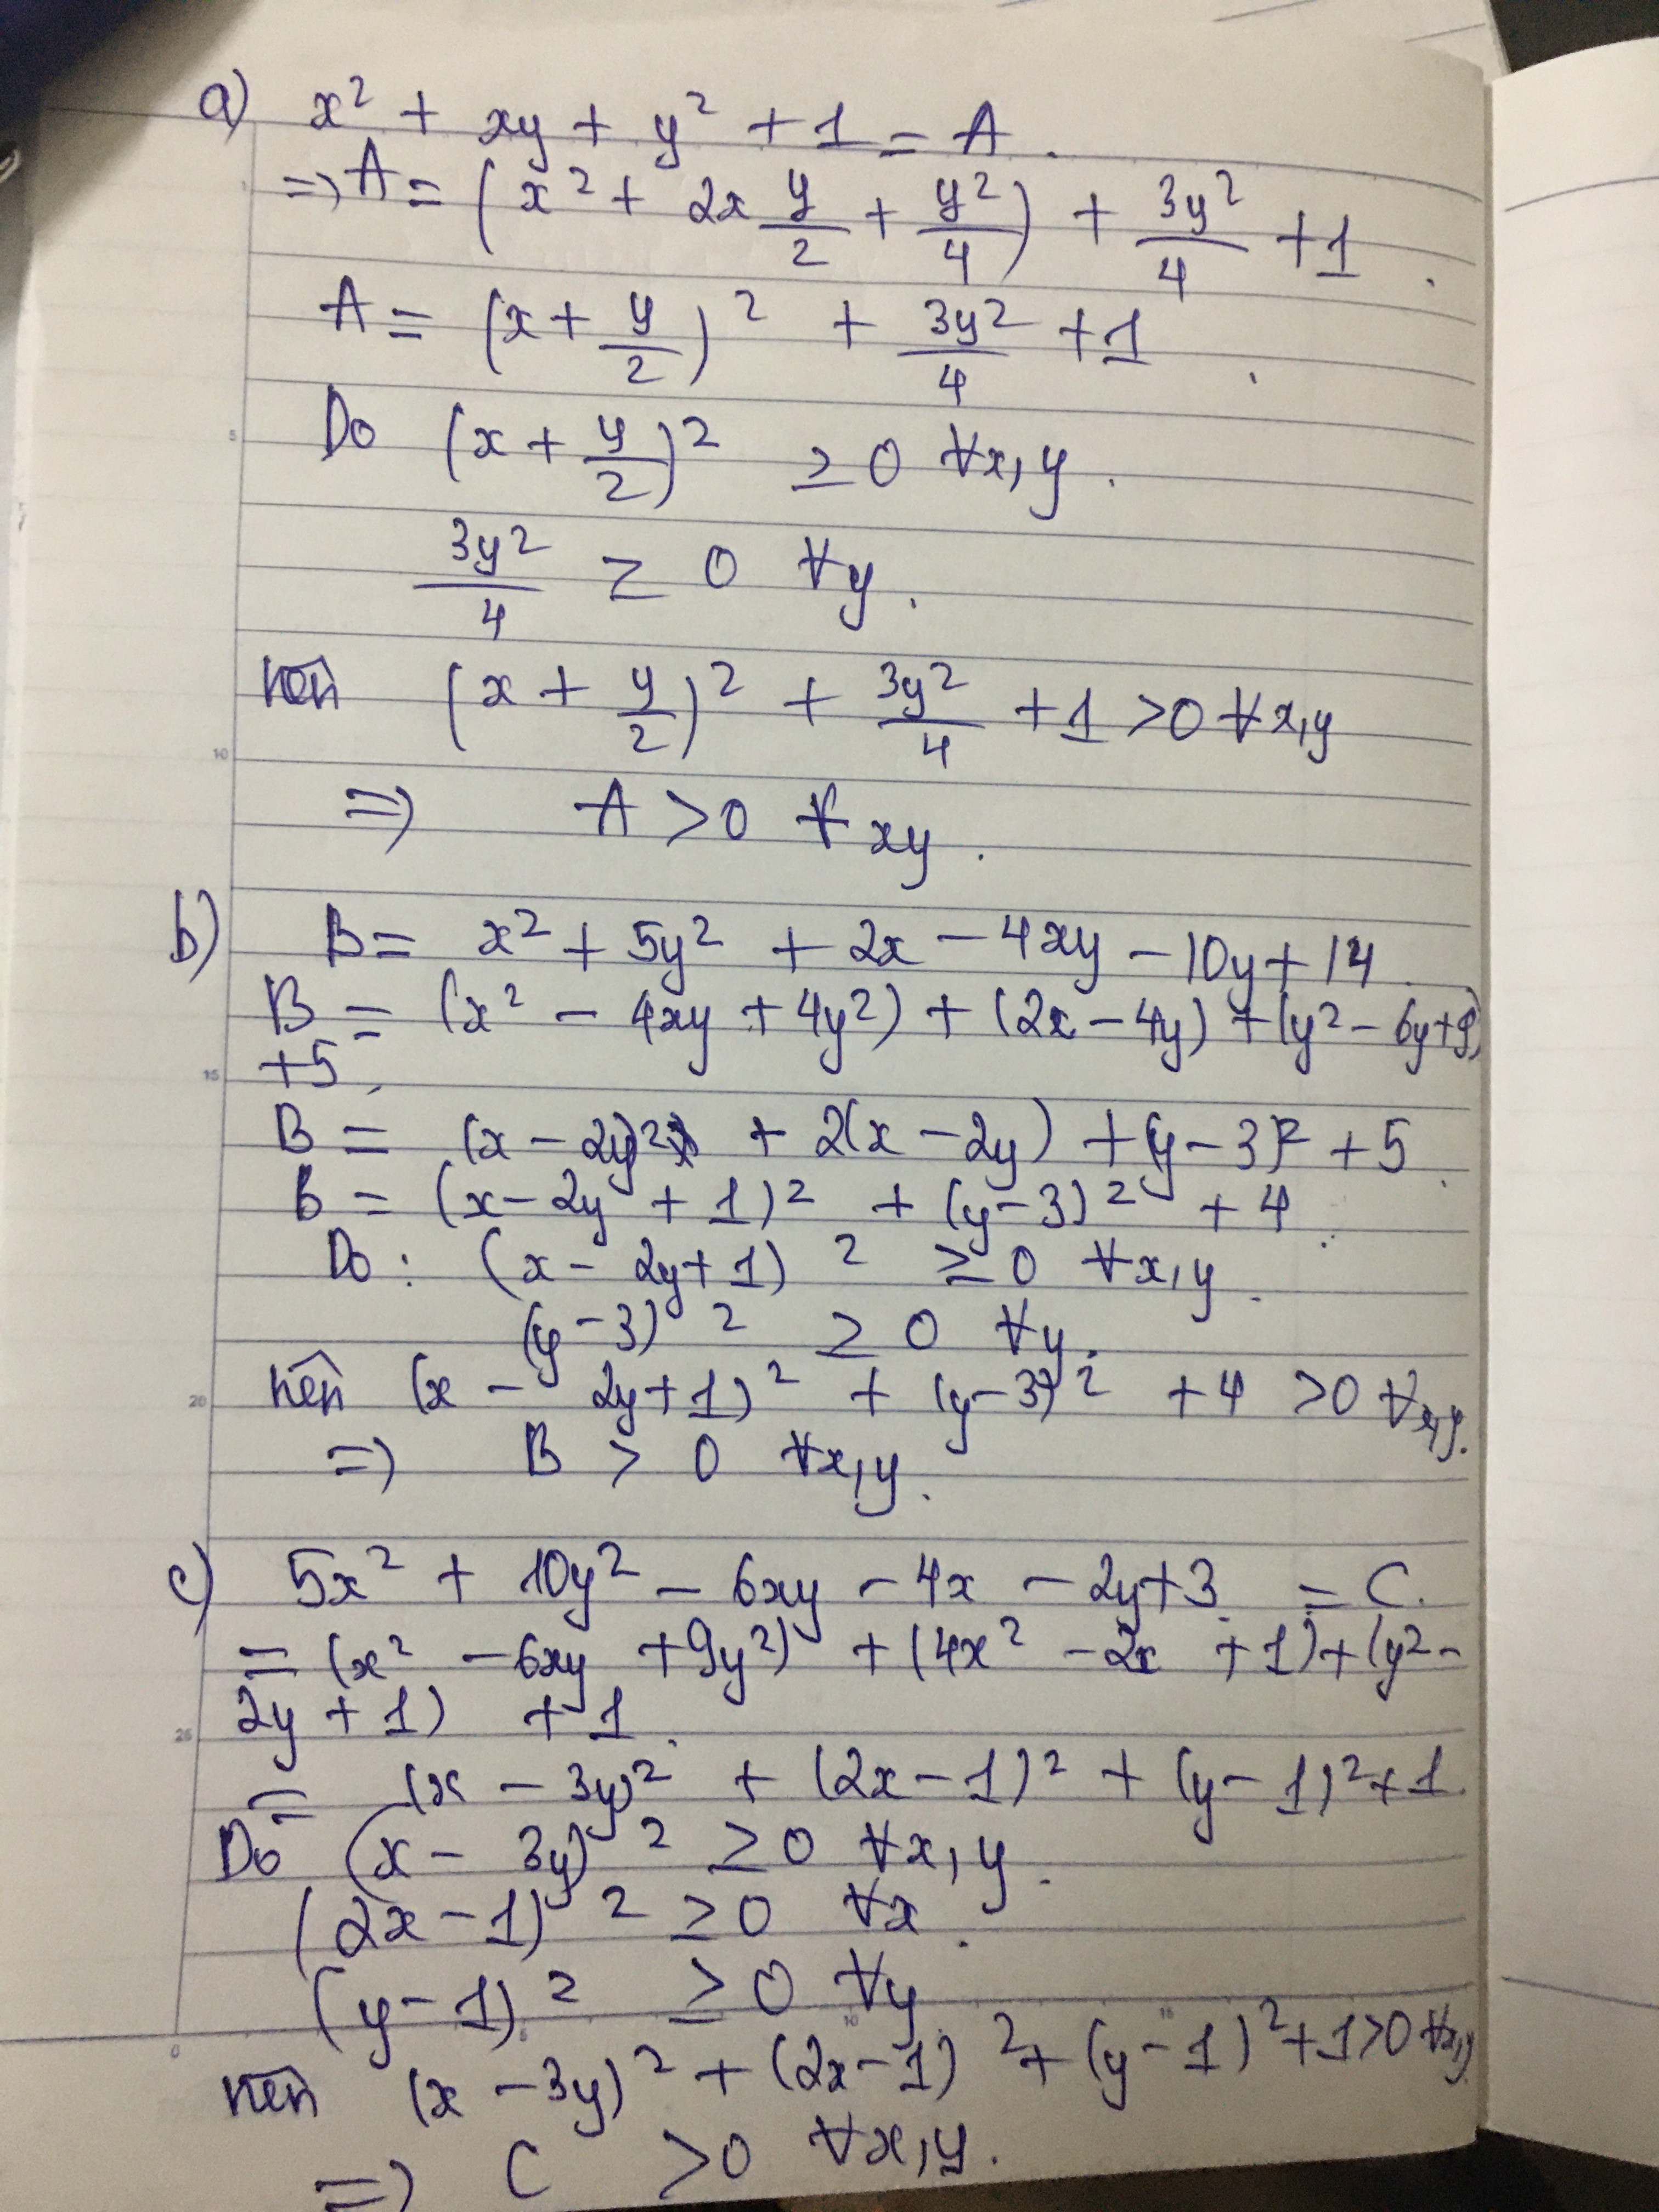 a) x² + xy + y² + 1 = A.
=> A = (x² + 2x y/2 + y²/4) + 3y²/4 + 1.
A = (x + y/2)² + 3y²/4 + 1.
Do (x + y/2)² ≥ 0 ∀x,y.
3y²/4 ≥ 0 ∀y.
nên (x + y/2)² + 3y²/4 + 1 > 0 ∀x,y
=> A > 0 ∀xy.
b) B = x² + 5y² + 2x - 4xy - 10y + 14.
B = (x² - 4xy + 4y²) + (2x - 4y) + (y² - 6y + 9)
+5.
B = (x - 2y)² + 2(x - 2y) + (y - 3)² + 5.
B = (x - 2y + 1)² + (y - 3)² + 4.
Do : (x - 2y + 1)² ≥ 0 ∀x,y.
(y - 3)² ≥ 0 ∀y.
nên (x - 2y + 1)² + (y - 3)² + 4 > 0 ∀x,y.
=> B > 0 ∀x,y.
c) 5x² + 10y² - 6xy - 4x - 2y + 3 = C.
= (x² - 6xy + 9y²) + (4x² - 2x + 1) + (y² -
2y + 1) + 1.
= (x - 3y)² + (2x - 1)² + (y - 1)² + 1.
Do (x - 3y)² ≥ 0 ∀x,y.
(2x - 1)² ≥ 0 ∀x.
(y - 1)² ≥ 0 ∀y.
nên (x - 3y)² + (2x - 1)² + (y - 1)² + 1 > 0 ∀x,y
=> C > 0 ∀x,y.